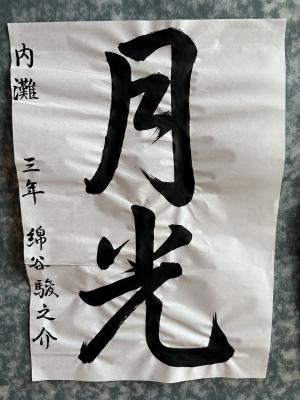 月光
内灘 三年 綿谷駿之介